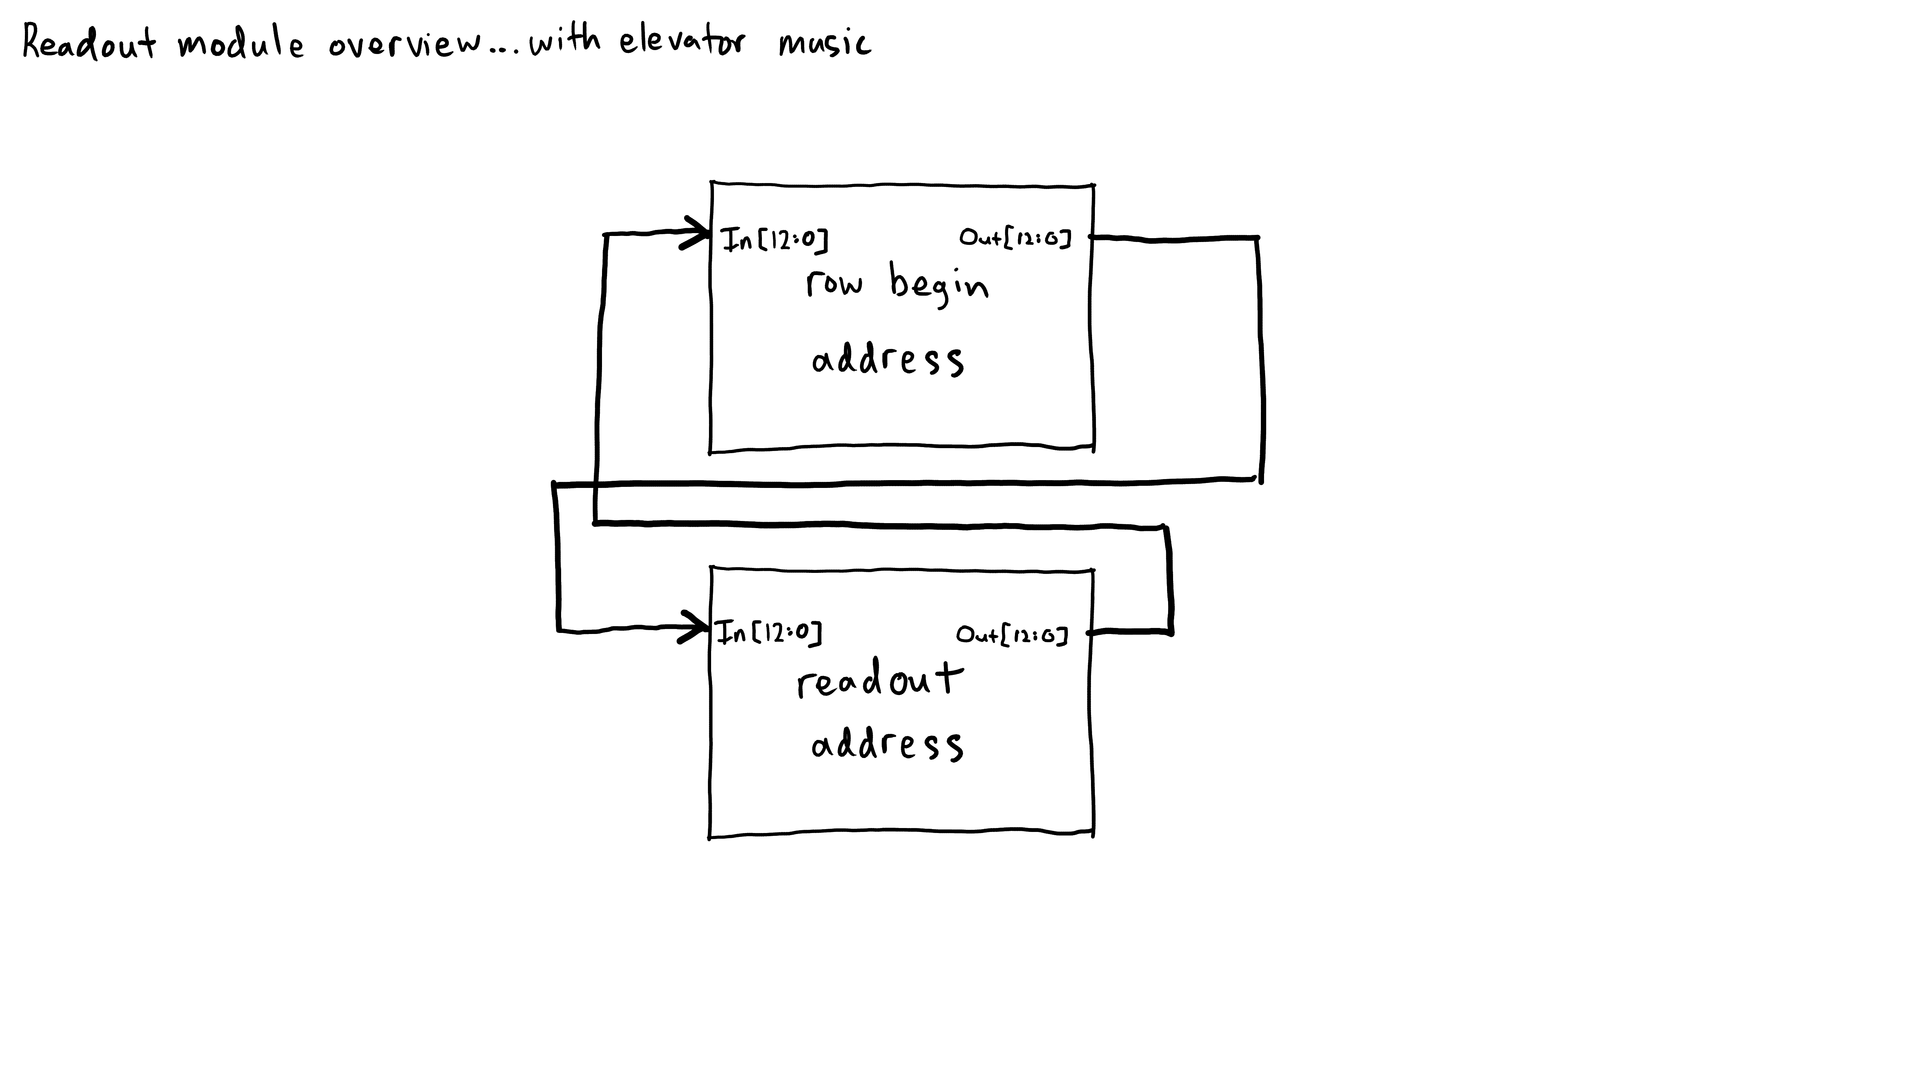 Readout module overview...with elevator music
In[12:0] Out[12:0]
row begin
address
In[12:0] Out[12:0]
readout
address